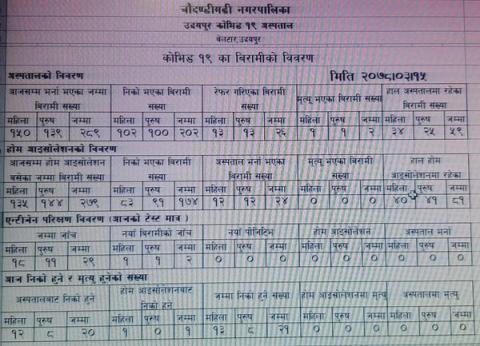 चौदण्डीगढी नगरपालिका
उदयपुर कोभिड १९ अस्पताल
बेलटार,उदयपुर
कोभिड १९ का बिरामीको विवरण
अस्पतालको विवरण मिति २०७८।०३।१५
आजसम्म भर्ना भएका जम्मा बिरामी संख्या निको भएका बिरामी संख्या रेफर गरिएका बिरामी संख्या मृत्यु भएका बिरामी संख्या हाल अस्पतालमा रहेका बिरामी संख्या
महिला पुरुष जम्मा महिला पुरुष जम्मा महिला पुरुष जम्मा महिला पुरुष जम्मा महिला पुरुष जम्मा
१५० १३९ २८९ १०२ १०० २०२ १३ १३ २६ १ १ २ ३४ २५ ५९
होम आइसोलेशनको विवरण
आजसम्म होम आइसोलेशन बसेका जम्मा बिरामी संख्या निको भएका बिरामी संख्या अस्पताल भर्ना भएका बिरामी संख्या मृत्यु भएका बिरामी संख्या हाल होम आइसोलेशनमा रहेका
महिला पुरुष जम्मा महिला पुरुष जम्मा महिला पुरुष जम्मा महिला पुरुष जम्मा महिला पुरुष जम्मा
१३५ १४४ २७९ ८३ ९१ १७४ १२ १२ २४ ० ० ० ४० ४१ ८१
एन्टीजेन परिक्षण विवरण (आजको टेस्ट मात्र)
जम्मा जाँच नयाँ बिरामीको जाँच नयाँ पोजिटिभ होम आइसोलेशन अस्पताल भर्ना
महिला पुरुष जम्मा महिला पुरुष जम्मा महिला पुरुष जम्मा महिला पुरुष जम्मा महिला पुरुष जम्मा
१८ ११ २९ १ १ २ ० ० ० ० ० ० ० ० ०
आज निको हुने र मृत्यु हुनेको संख्या
अस्पतालबाट निको हुने होम आइसोलेशनबाट निको हुने जम्मा निको हुने संख्या होम आइसोलेशनमा मृत्यु अस्पतालमा मृत्यु
महिला पुरुष जम्मा महिला पुरुष जम्मा महिला पुरुष जम्मा महिला पुरुष जम्मा महिला पुरुष जम्मा
१२ ८ २० १ ० १ १३ ८ २१ ० ० ० ० ० ०